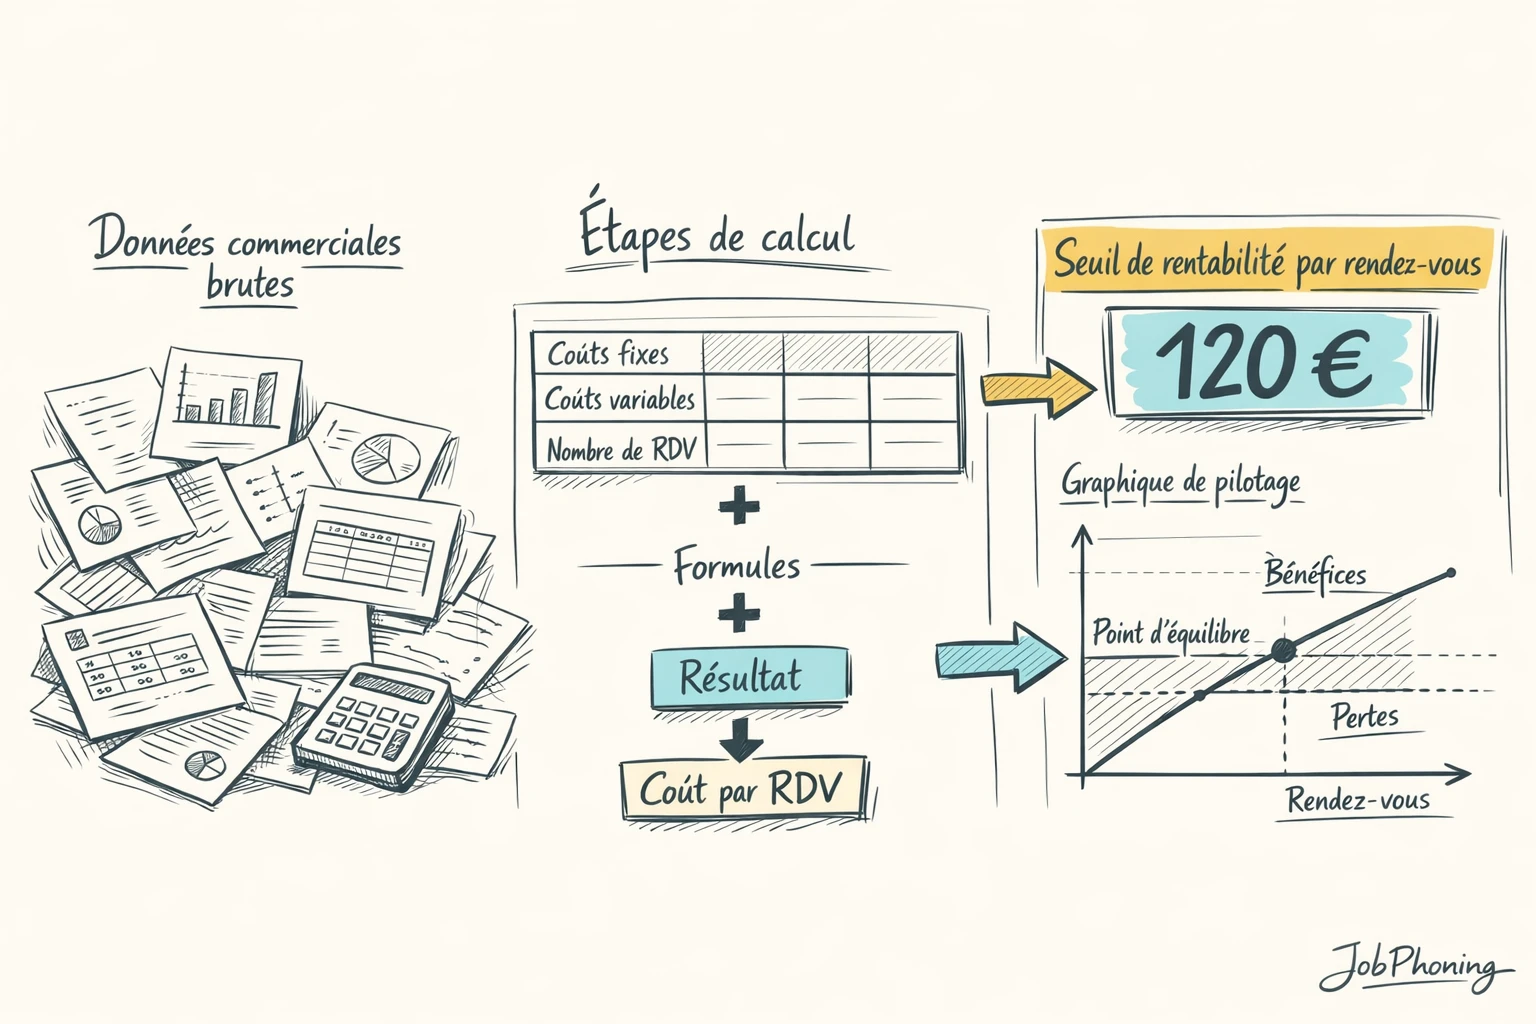 Données commerciales
brutes
Étapes de calcul
Coúts fixes
Coúts variables
Nombre de RDV
Formules
Résultat
Coút par RDV
Seuil de rentabilité par rendez-vous
120 €
Graphique de pilotage
Bénéfices
Point d'équilibre
Pertes
Rendez-vous
JobPhoning